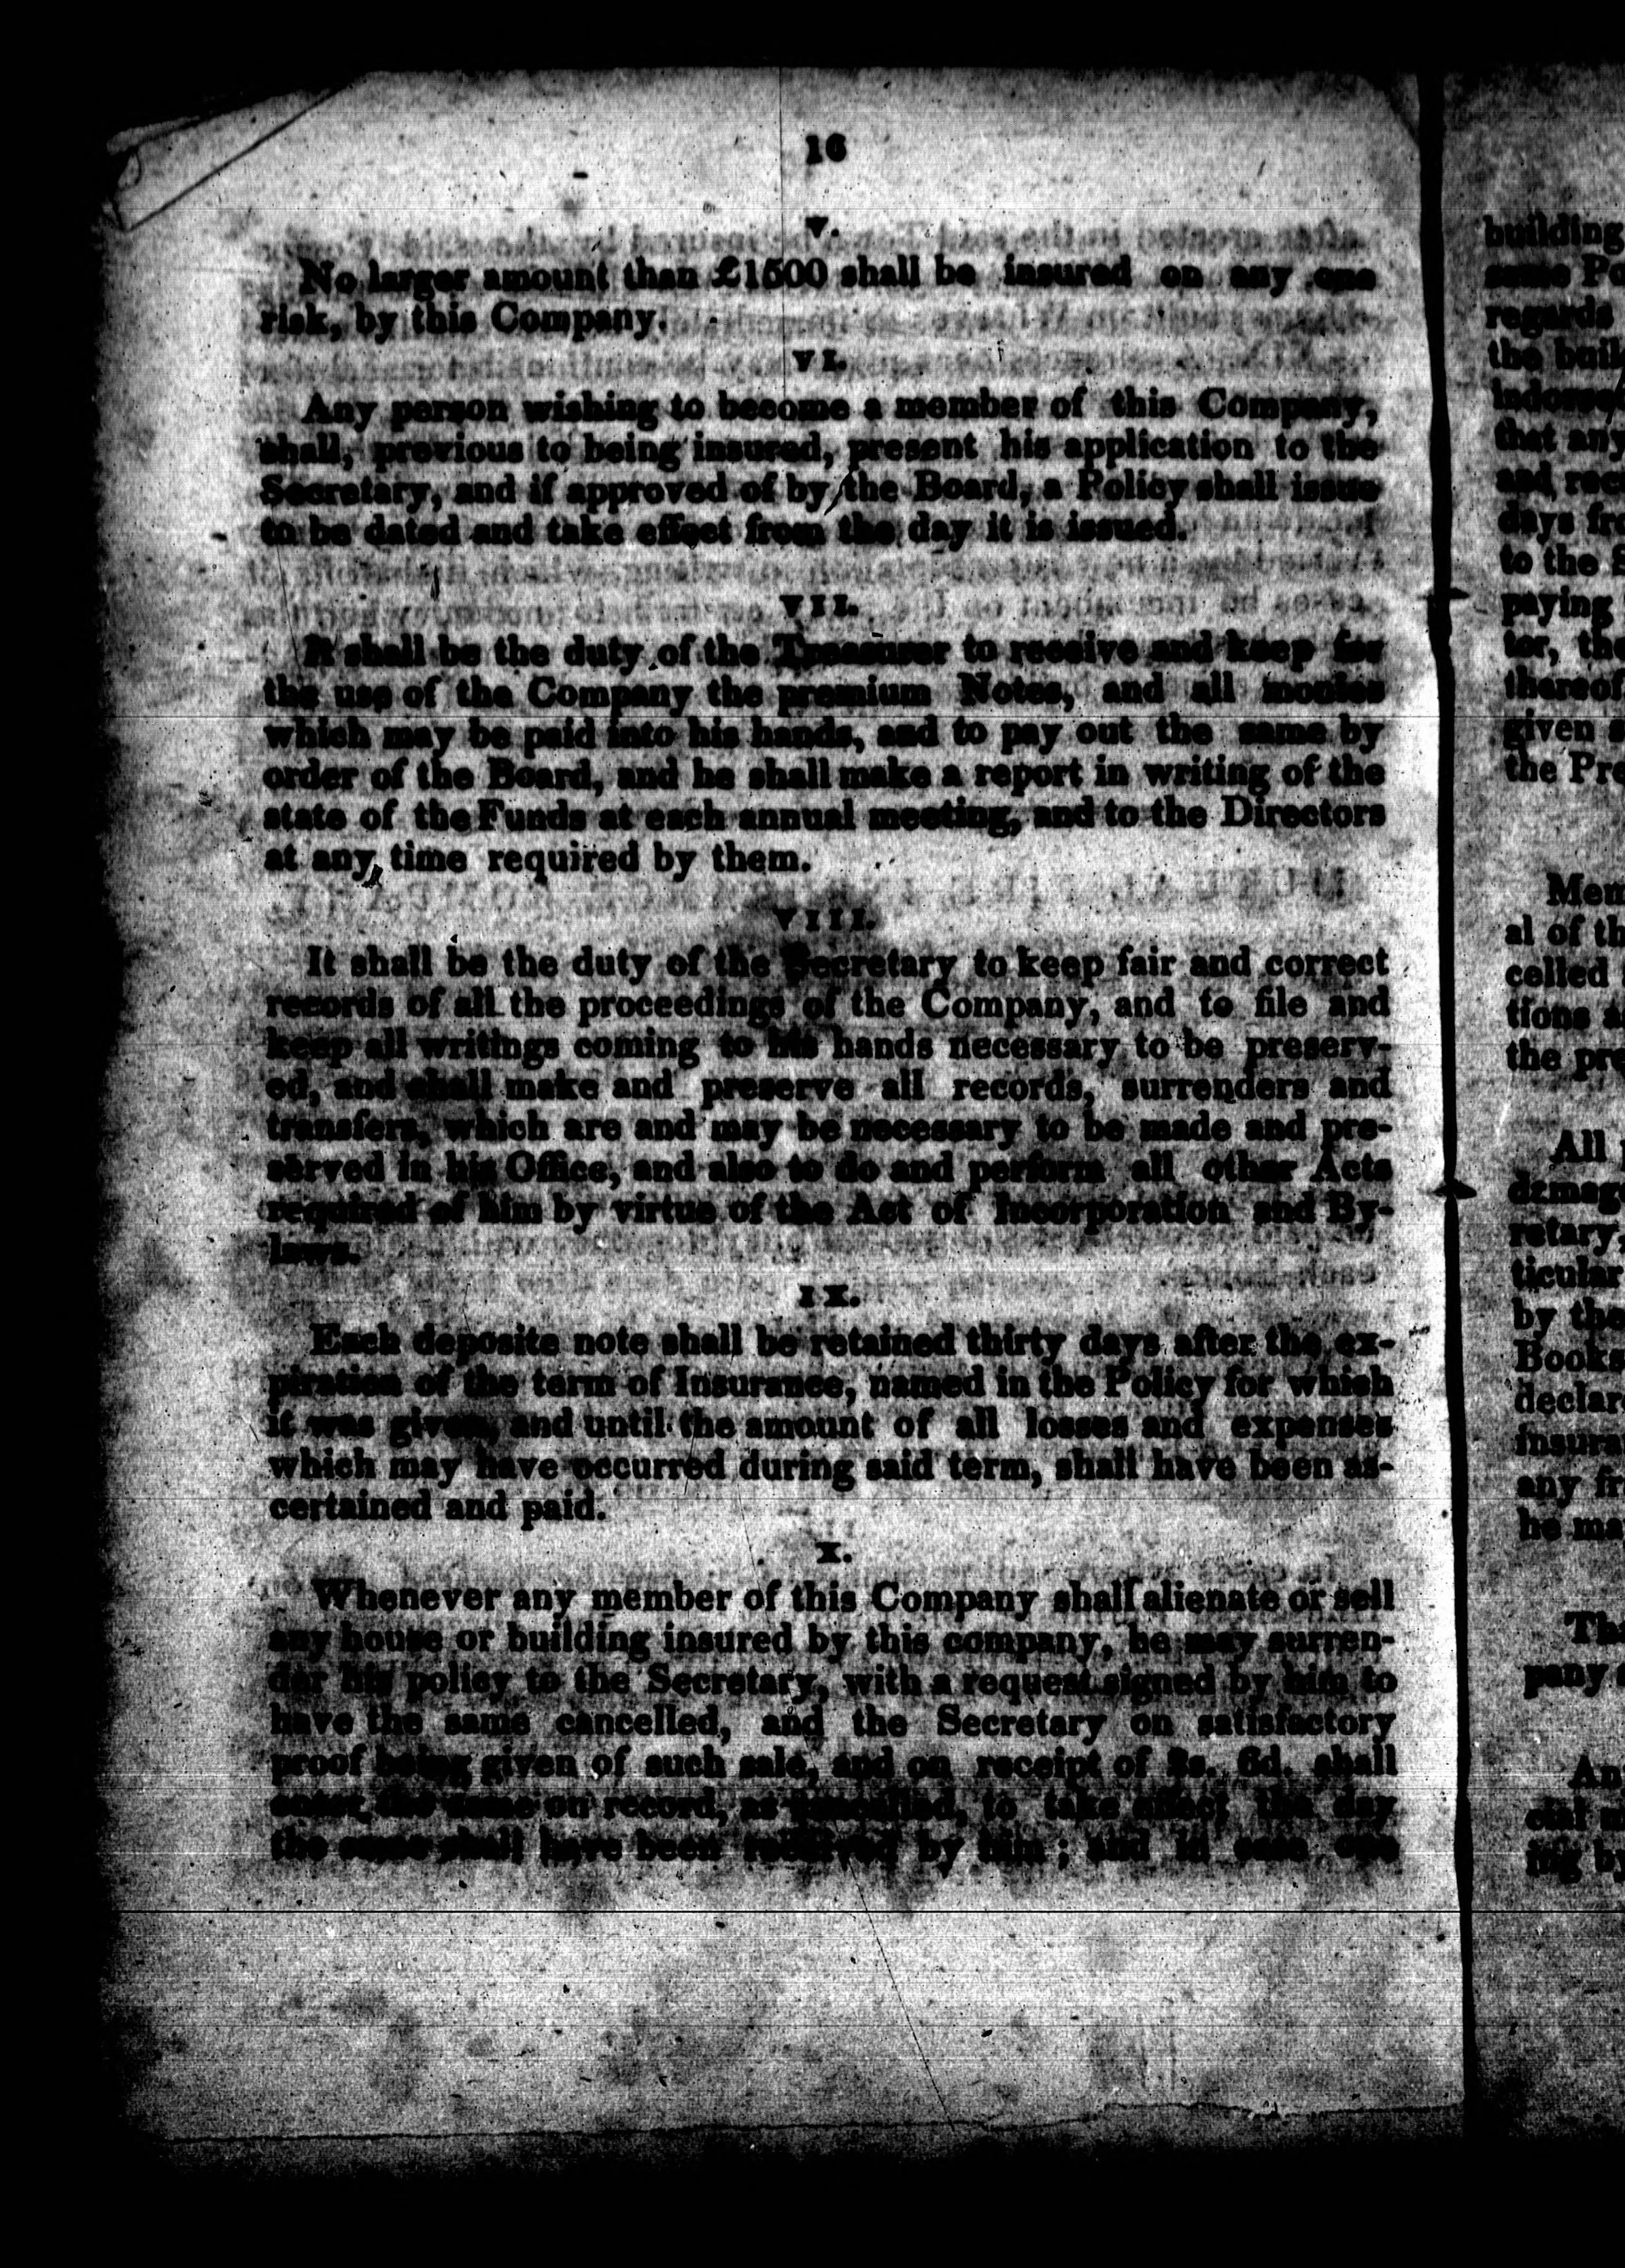 16
V.
No larger amount than £1500 shall be insured on any one
risk, by this Company.
VI.
Any person wishing to become a member of this Company,
shall, previous to being insured, present his application to the
Secretary, and if approved of by the Board, a Policy shall issue
to be dated and take effect from the day it is issued.
VII.
It shall be the duty of the Treasurer to receive and keep for
the use of the Company the premium Notes, and all monies
which may be paid into his hands, and to pay out the same by
order of the Board, and he shall make a report in writing of the
state of the Funds at each annual meeting, and to the Directors
at any time required by them.
VIII.
It shall be the duty of the Secretary to keep fair and correct
records of all the proceedings of the Company, and to file and
keep all writings coming to his hands necessary to be preserv-
ed, and shall make and preserve all records, surrenders and
transfers, which are and may be necessary to be made and pre-
served in his Office, and also to do and perform all other Acts
required of him by virtue of the Act of Incorporation and By-
laws.
IX.
Each deposite note shall be retained thirty days after the ex-
piration of the term of Insurance, named in the Policy for which
it was given, and until the amount of all losses and expenses
which may have occurred during said term, shall have been as-
certained and paid.
X.
Whenever any member of this Company shall alienate or sell
any house or building insured by this company, he may surren-
der his policy to the Secretary, with a request signed by him to
have the same cancelled, and the Secretary on satisfactory
proof being given of such sale, and on receipt of 6d. shall
enter the same on record, as cancelled, to take effect the day
the same shall have been received by him ; and in case
building
same
regards
the
that any
and
days
to the
paying
tor, the
thereof
given
the
al of
celled
tions
the
All
retary,
ticular
by the
Books
any
he
pany
by